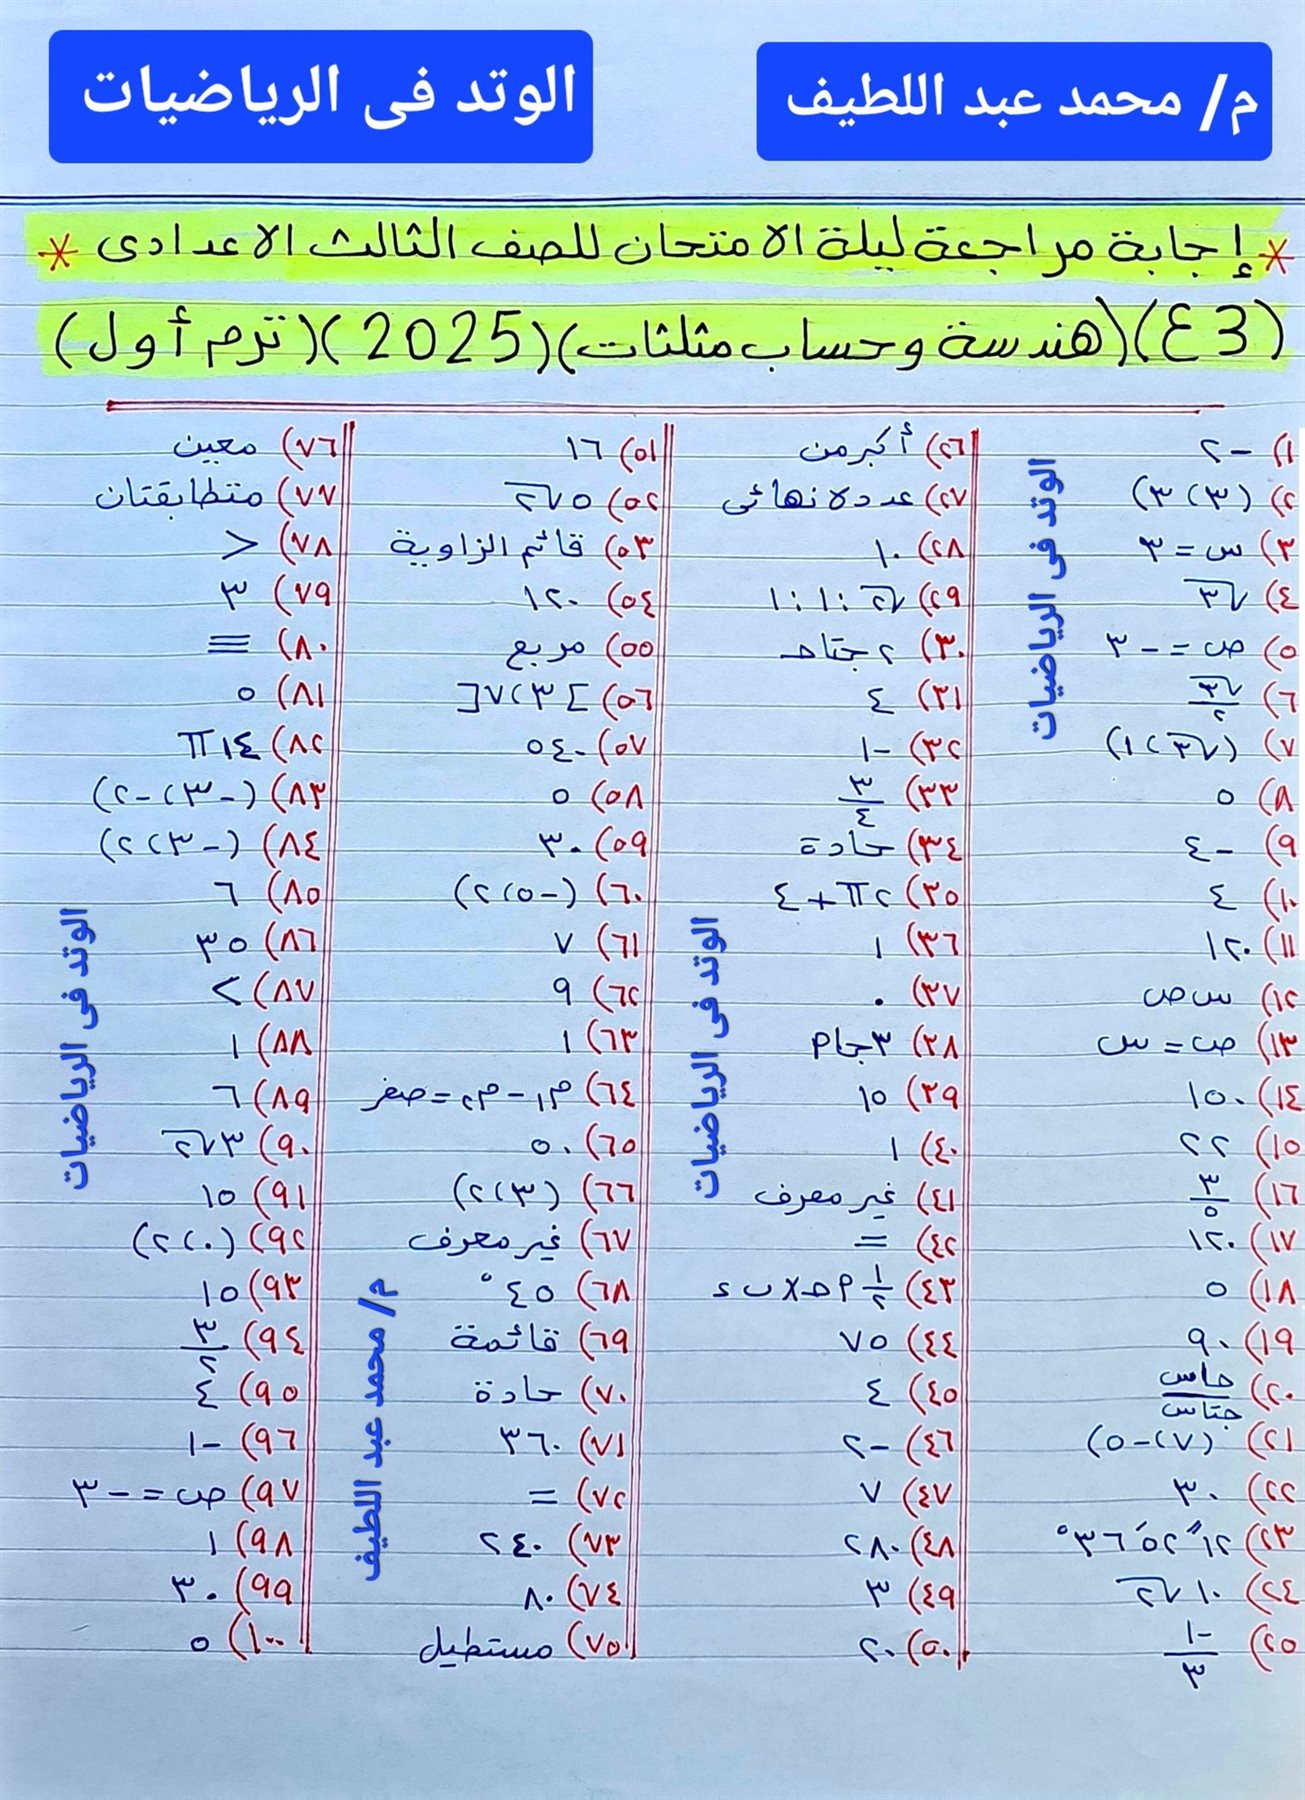 م/ محمد عبد اللطيف
الوتد فى الرياضيات
* إجابة مراجعة ليلة الامتحان للصف الثالث الاعدادى *
(3ع)(هندسة وحساب مثلثات)(2025)(ترم أول)
١) -٢
٢) (٣،٣)
٣) س = ٣
٤) √٣
٥) ص = -٣
٦) √٣/٢
٧) (√٣،١)
٨) ٥
٩) -٤
١٠) ٤
١١) ١٢٠
١٢) س ص
١٣) ص = س
١٤) ١٥٠
١٥) ٢٢
١٦) ٣/٥
١٧) ١٢٠
١٨) ٥
١٩) ٩٠
٢٠) جاس/جتاس
٢١) (٧،-٥)
٢٢) ٣٠
٢٣) ١٢ ً ٥٢ َ ٣٦ °
٢٤) ١٠√٢
٢٥) -١/٣
الوتد فى الرياضيات
٢٦) أكبر من
٢٧) عدد لا نهائى
٢٨) ١٠
٢٩) √٢ : ١ : ١
٣٠) ٢ جتا ھ
٣١) ٤
٣٢) -١
٣٣) ٣/٤
٣٤) حادة
٣٥) ٢π + ٤
٣٦) ١
٣٧) ٠
٣٨) ٣ جا م
٣٩) ١٥
٤٠) ١
٤١) غير معرف
٤٢) =
٤٣) ١/٢ م ھ × ب ء
٤٤) ٧٥
٤٥) ٤
٤٦) -٢
٤٧) ٧
٤٨) ٢٨٠
٤٩) ٣
٥٠) ٢٠
الوتد فى الرياضيات
٥١) ١٦
٥٢) ٥√٢
٥٣) قائم الزاوية
٥٤) ١٢٠
٥٥) مربع
٥٦) ]٣،٧[
٥٧) ٥٤٠
٥٨) ٥
٥٩) ٣٠
٦٠) (-٥،٢)
٦١) ٧
٦٢) ٩
٦٣) ١
٦٤) م١ - م٢ = صفر
٦٥) ٥٠
٦٦) (٣،٢)
٦٧) غير معرف
٦٨) ٤٥°
٦٩) قائمة
٧٠) حادة
٧١) ٣٦٠
٧٢) =
٧٣) ٢٤٠
٧٤) ٨٠
٧٥) مستطيل
م/ محمد عبد اللطيف
٧٦) معين
٧٧) متطابقتان
٧٨) <
٧٩) ٣
٨٠) ≡
٨١) ٥
٨٢) ١٤π
٨٣) (-٣،-٢)
٨٤) (-٣،٢)
٨٥) ٦
٨٦) ٣٥
٨٧) >
٨٨) ١
٨٩) ٦
٩٠) ٣√٢
٩١) ١٥
٩٢) (٠،٢)
٩٣) ١٥
٩٤) ٣/٢
٩٥) ٤
٩٦) -١
٩٧) ص = -٣
٩٨) ١
٩٩) ٣٠
١٠٠) ٥
الوتد فى الرياضيات